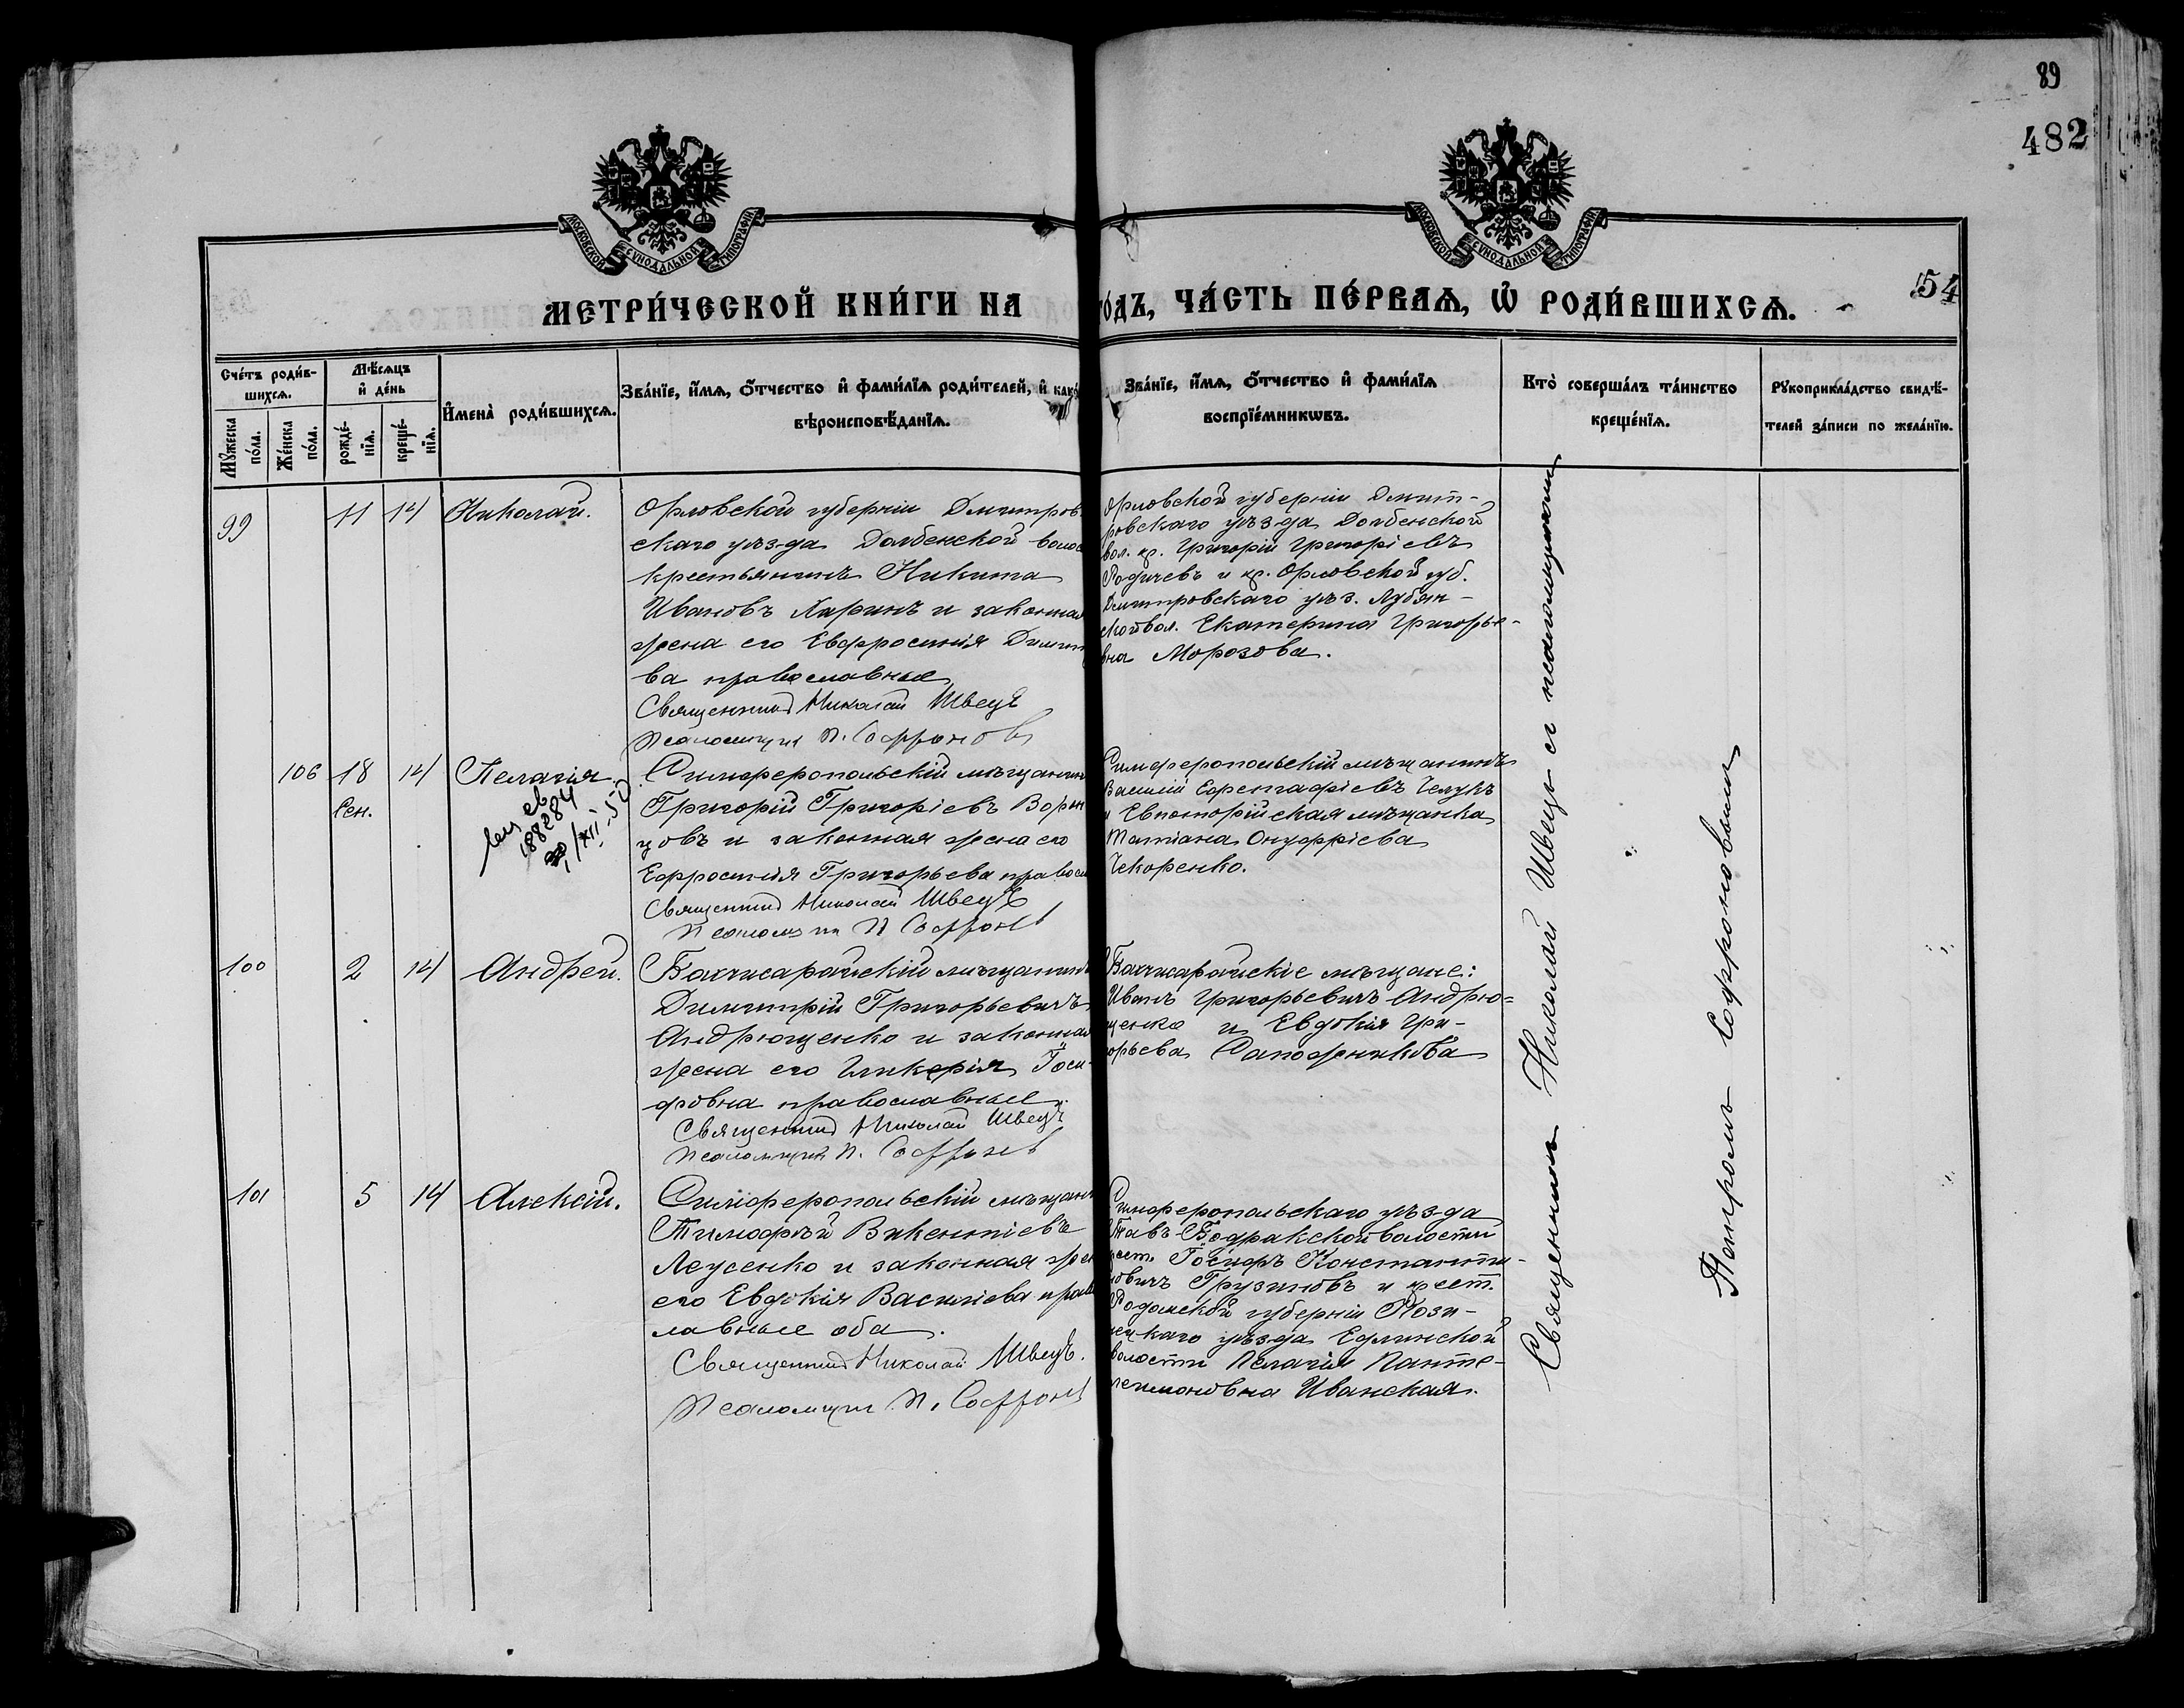 89
482
МОСКОВСКОЙ СѴНОДАЛЬНОЙ ТИПОГРАФІИ
МОСКОВСКОЙ СѴНОДАЛЬНОЙ ТИПОГРАФІИ
54
МЕТРИ́ЧЕСКОЙ КНИ́ГИ НА
ГО́ДЪ, ЧА́СТЬ ПЕ́РВАѦ, Ѡ҆ РОДИ́ВШИХСѦ.
Сче́тъ роди́в-
шихсѧ.
Мꙋ́жеска
по́ла.
Же́нска
по́ла.
Мѣ́сѧцъ
и҆ де́нь
рожде́-
нїѧ.
креще́-
нїѧ.
И҆мена̀ роди́вшихсѧ.
Зва́нїе, и҆́мѧ, ѻ҆́тчество и҆ фами́лїѧ роди́телей, и҆ како́
вѣроисповѣ́данїѧ.
Зва́нїе, и҆́мѧ, ѻ҆́тчество и҆ фами́лїѧ
воспрїе́мникѡвъ.
Кто̀ соверша́лъ та́инство
креще́нїѧ.
Рꙋкоприкла́дство свидѣ́-
телей за́писи по жела́нїю.
99 11 14 Николай.
Орловской губерніи Дмитров
скаго уѣзда Долбенской волос
крестьянинъ Никита
Ивановъ Ларинъ и законная
жена его Евфросинія Димит
ва православные
Священникъ Николай Швецъ
Псаломщикъ П. Софроновъ
Орловской губерніи Дмит-
ровскаго уѣзда Долбенской
вол. кр. Григорій Григорьевъ
Родичевъ и кр. Орловской губ.
Дмитровскаго уѣз. Лубян-
ской вол. Екатерина Григорье-
вна Морозова.
106 18 14 Пелагія.
Сен.
188284
XII-50
Симферопольскій мѣщанин
Григорій Григорьевъ Ворон
цовъ и законная жена его
Ефросинія Григорьева правосл
Священникъ Николай Швецъ
Псаломщикъ П Софронов
Симферопольскій мѣщанинъ
Василій Ефстафіевъ
и Евпаторійская мѣщанка
Татіана Онуфріева
Чекоренко.
100 2 14 Андрей.
Бахчисарайскій мѣщанинъ
Димитрій Григорьевичъ
Андрющенко и законная
жена его Гликерія Іоси-
фовна православные.
Священникъ Николай Швецъ
Псаломщикъ П. Софронов
Бахчисарайскіе мѣщане:
Иванъ Григорьевичъ Андрю=
щенко и Евдокія Гри-
горьева Сапожникова
101 5 14 Алексій.
Симферопольскій мѣщани
Тимофѣй Викентіевъ
Леусенко и законная жен
его Евдокія Василіева право
лавные оба.
Священникъ Николай Швецъ.
Псаломщикъ П. Софронов
Симферопольскаго уѣзда
Тавъ-Бодракской волости
крест. Іосифъ Константи-
новичъ Грузиновъ и крест.
Радомской губерніи Кози-
ницкаго уѣзда Едлинской
волости Пелагія Панте-
леимоновна Иванская.
Священникъ Николай Швецъ съ псаломщикомъ
Петромъ Софроновымъ